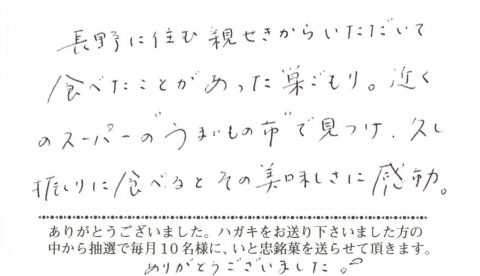 長野に住む親せきからいただいて
食べたことがあった巣ごもり。近く
のスーパーの"うまいもの市"で見つけ、久し
振りに食べるとその美味しさに感動。
ありがとうございました。ハガキをお送り下さいました方の
中から抽選で毎月10名様に、いと忠銘菓を送らせて頂きます。
ありがとうございました。